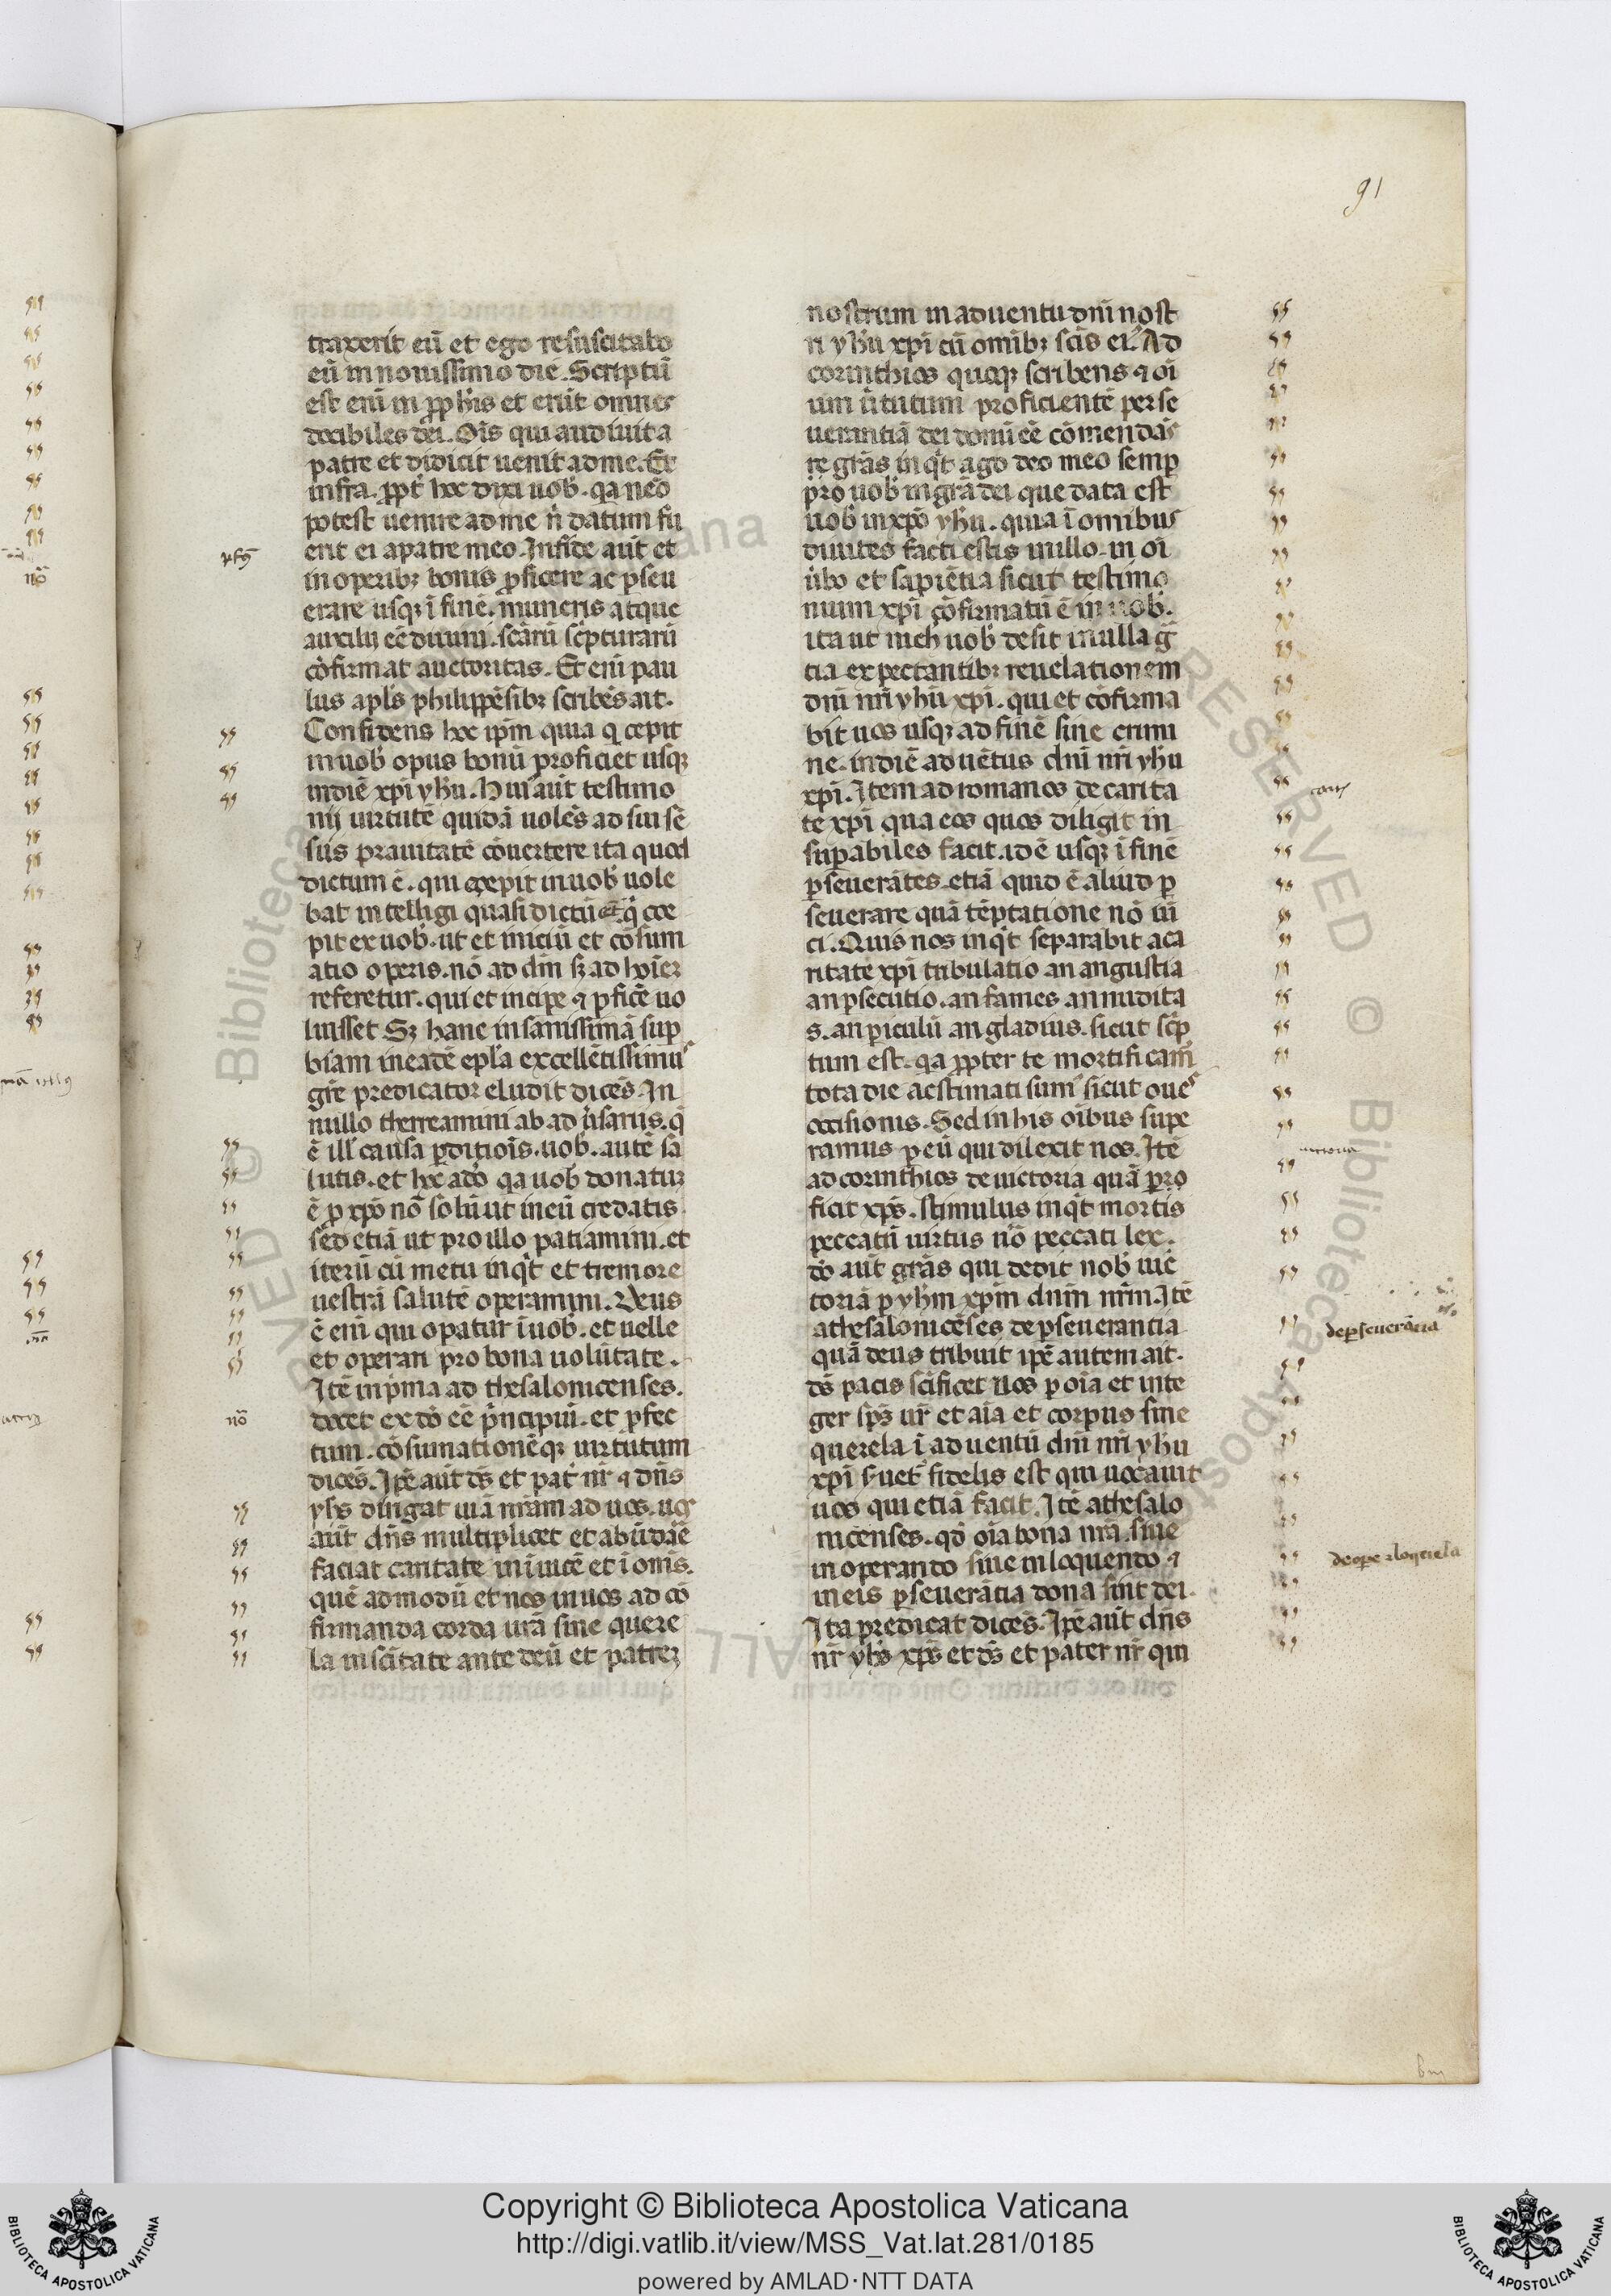 91
traxerit eū et ego resuscitabo
eū in nouissimo die. Scriptū
est eni in ꝓphis et erūt omnes
docibiles dei. Ois qui audiuit a
patre et didicit uenit ad me. Et
infra. ꝓpt hoc dixi uob. qa nemo
potest uenire ad me n datum fu
erit ei a patre meo. In fide aūt et
in operibꝫ bonis ꝓficere ac ꝑseu
erare usqꝫ ī finē. muneris atque
auxilij eē diuini. scārū scͥpturarū
cōfirmat auctoritas. Et eni pau
lus apls philippēsibꝫ scribēs ait.
Confidens hoc ipm quia q cepit
in uob opus bonū proficiet usqꝫ
in diē xpi yhu. Huiꝰ aūt testimo
nij uirtutē quidā uolēs ad sui sē
sus prauitatē cōuertere ita quod
dictum ē. qui cepit in uob uole
bat intelligi quasi dictū eēt q coe
pit ex uob. ut et iniciū et cōsum
atio operis. nō ad dm sꝫ ad hoieꝫ
referetur. qui et incipe ⁊ ꝑficē uo
luisset Sꝫ hanc insanissimā sup
biam in eadē epla excellētissimuꝰ
grē predicator eludit dicēs. In
nullo therreamini ab aduersariis. q
ē ill causa ꝑditiois. uob. autē sa
lutis. et hoc a do qa uob donatuꝫ
ē ꝑ xpo nō solū ut in eū credatis
sed etiā ut pro illo patiamini. et
iterū cū metu inqt et tremore
uestrā salutē operamini. Deus
ē eni qui opatur ī uob. et uelle
et operari pro bona uolūtate.
Itē in pͥma ad thesalonicenses.
docet ex do eē pͥncipiū. et ꝑfec
tum. cōsumationēqꝫ uirtutum
dicēs. Ipē aūt ds et pat nr ⁊ dns
yhs dirigat uiā nrām ad uos. uos
aūt dns multiplicet et abūdāē
faciat caritate in inuicē et ī omīs.
quē admodū et nos in uos ad cō
firmanda corda urā sine quere
la in scitate ante deū et patreꝫ
nostrum in aduentu dni nost
ri yhu xpi cū omibꝫ scis eiꝰ. Ad
corinthios quoqꝫ scribens ⁊ oi
um uͥtutum proficientē perse
uerantiā dei donū eē cōmendās
re grās inqt ago deo meo semꝑ
pro uob in gra dei que data est
uob in xpo yhu. quia ī omibus
diuites facti estis in illo. in oi
ubo et sapiētia sicut testimo
nium xpi cōfirmatū ē in uob.
ita ut nich uob desit in ulla g
tia expectantibꝫ reuelationem
dni nri yhu xpi. qui et cōfirma
bit uos usqꝫ ad finē sine crimi
ne. in diē aduētus dni nri yhu
xpi. Item ad romanos de carita
te xpi qua eos quos diligit in
suꝑabiles facit. id ē usqꝫ ī finē
ꝑseuerātes. etiā quid ē aliud ꝑ
seuerare quā tēptatione nō ui
ci. Quis nos inqt separabit a ca
ritate xpi tribulatio an angustia
an ꝑsecutio. an fames. an nudita
s. an ꝑiculū an gladius. sicut scͥp
tum est. qa ꝓpter te mortificamͬ
tota die aestimati sumꝰ sicut oues
occisionis. Sed in his oībus supe
ramus ꝑ eū qui dilexit nos. Itē
ad corinthios de uictoria quā pro
ficit xps. stimulus inqt mortis
peccatū uirtus nō peccati lex.
do aūt grās qui dedit nob uic
toriā ꝑ yhm xpm dnm nrm. Itē
a thesalonicēses de ꝑseuerantia
quā deus tribuit ipē autem ait.
ds pacis scificet uos ꝑ oīa et inte
ger sps ur et aīa et corpus sine
querela ī aduentū dni nri yhu
xpi suetͬ fidelis est qui uocauit
uos qui etiā facit. Itē a thesalo
nicenses. qd oīa bona nrā. siue
in operando siue in loquendo ⁊
in eis ꝑseuerātia dona sint dei.
Ita predicat dicēs. Ipē aūt dns
nr yhs xps et ds et pater nr qui
nō
de ꝑseuerātia
de ope ⁊ loquela
Copyright © Biblioteca Apostolica Vaticana
http://digi.vatlib.it/view/MSS_Vat.lat.281/0185
powered by AMLAD·NTT DATA
BIBLIOTECA APOSTOLICA VATICANA
BIBLIOTECA APOSTOLICA VATICANA